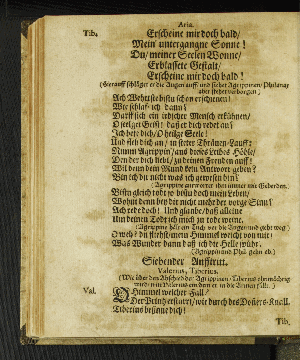 Aria.
Tib. Erscheine mir doch bald/
Mein untergangne Sonne!
Du/ meiner Seelen Wonne/
Erblassete Gestalt/
Erscheine mir doch bald!
(Hierauff schlägt er die Augen auff/ und siehet Agrippinen/ Phulanax
aber stehet verborgen)
Ach Wehrteste bistu schon erschienen!
Wie schlaf' ich dann?
Darff sich ein irdscher Mensch erkühnen/
O seelges Geist! daß er dich redet an?
Ich bete dich/ O heilge Seele!
Und fleh dich an/ in steter Thränen-Guß:
Nimm Agrippin/ aus dieses Leibes Höhle/
Den der dich liebt/ zu deinen Freuden auff!
Wil denn dein Mund kein Antwort geben?
Bin ich dir nicht was ich gewesen bin?
(Agrippine antwortet ihm immer mit Geberden.
Bistu gleich todt so bistu doch mein Leben/
Wohnt denn bey dir nicht mehr der vorge Sinn?
Ach rede doch! Und glaube/ daß alleine
Um deinen Todt ich mich zu todte weine.
(Agrippine hält ein Tuch vor die Augen und geht weg)
O weh! du fliehst/ mein Himmel weicht von mir/
Was Wunder dann daß ich die Helle führ.
(Agrippine und Phul. gehn ab.)
Siebender Aufftritt.
Valerius, Tiberius.
Val. O Himmel welcher Fall?
Der Printz erstarrt/ wie durch des Doners-Knall.
Tiberius besinne dich!
Tib.